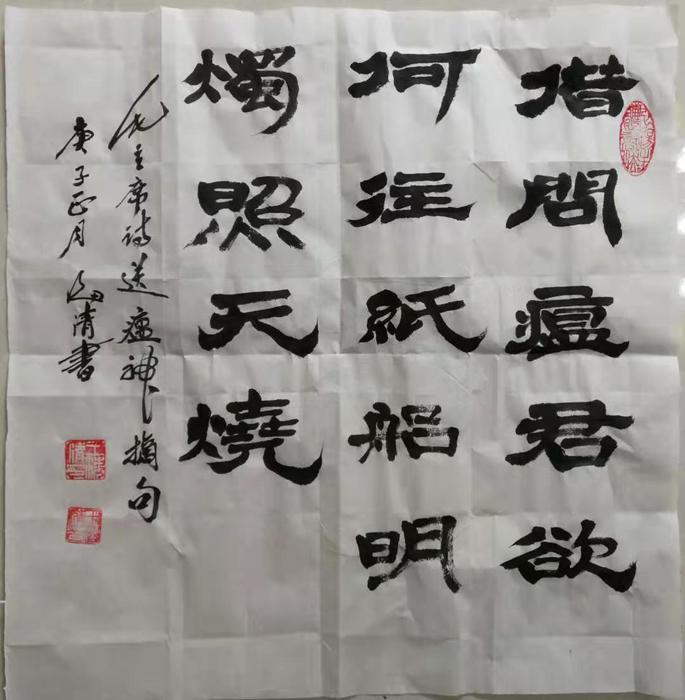 借問瘟君欲
何往紙船明
燭照天燒
毛主席诗送瘟神摘句
庚子正月 清書